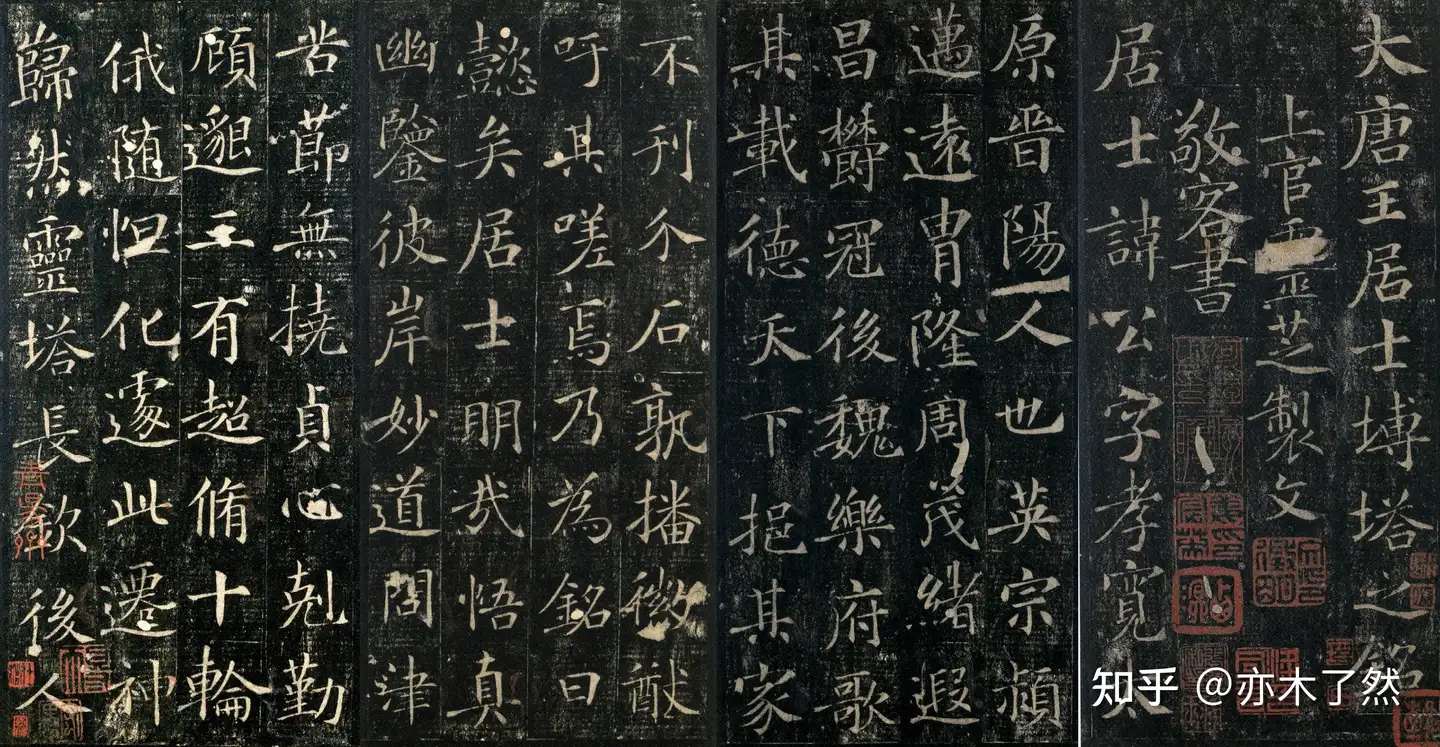 大唐王居士塼塔之銘
上官靈芝製文
敬客書
居士諱公字孝寬太
原晉陽人也英宗頴
邁遠胄隆周茂緒遐
昌欝冠後魏樂府歌
其載德天下挹其家
不刊介石孰播徽猷
吁其嗟焉乃為銘曰
懿矣居士明哉悟真
幽鑒彼岸妙道問津
苦節無撓貞心剋勤
顧邈三有超脩十輪
俄隨怛化遽此遷神
巋然靈塔長欽後人
知乎 @亦木了然